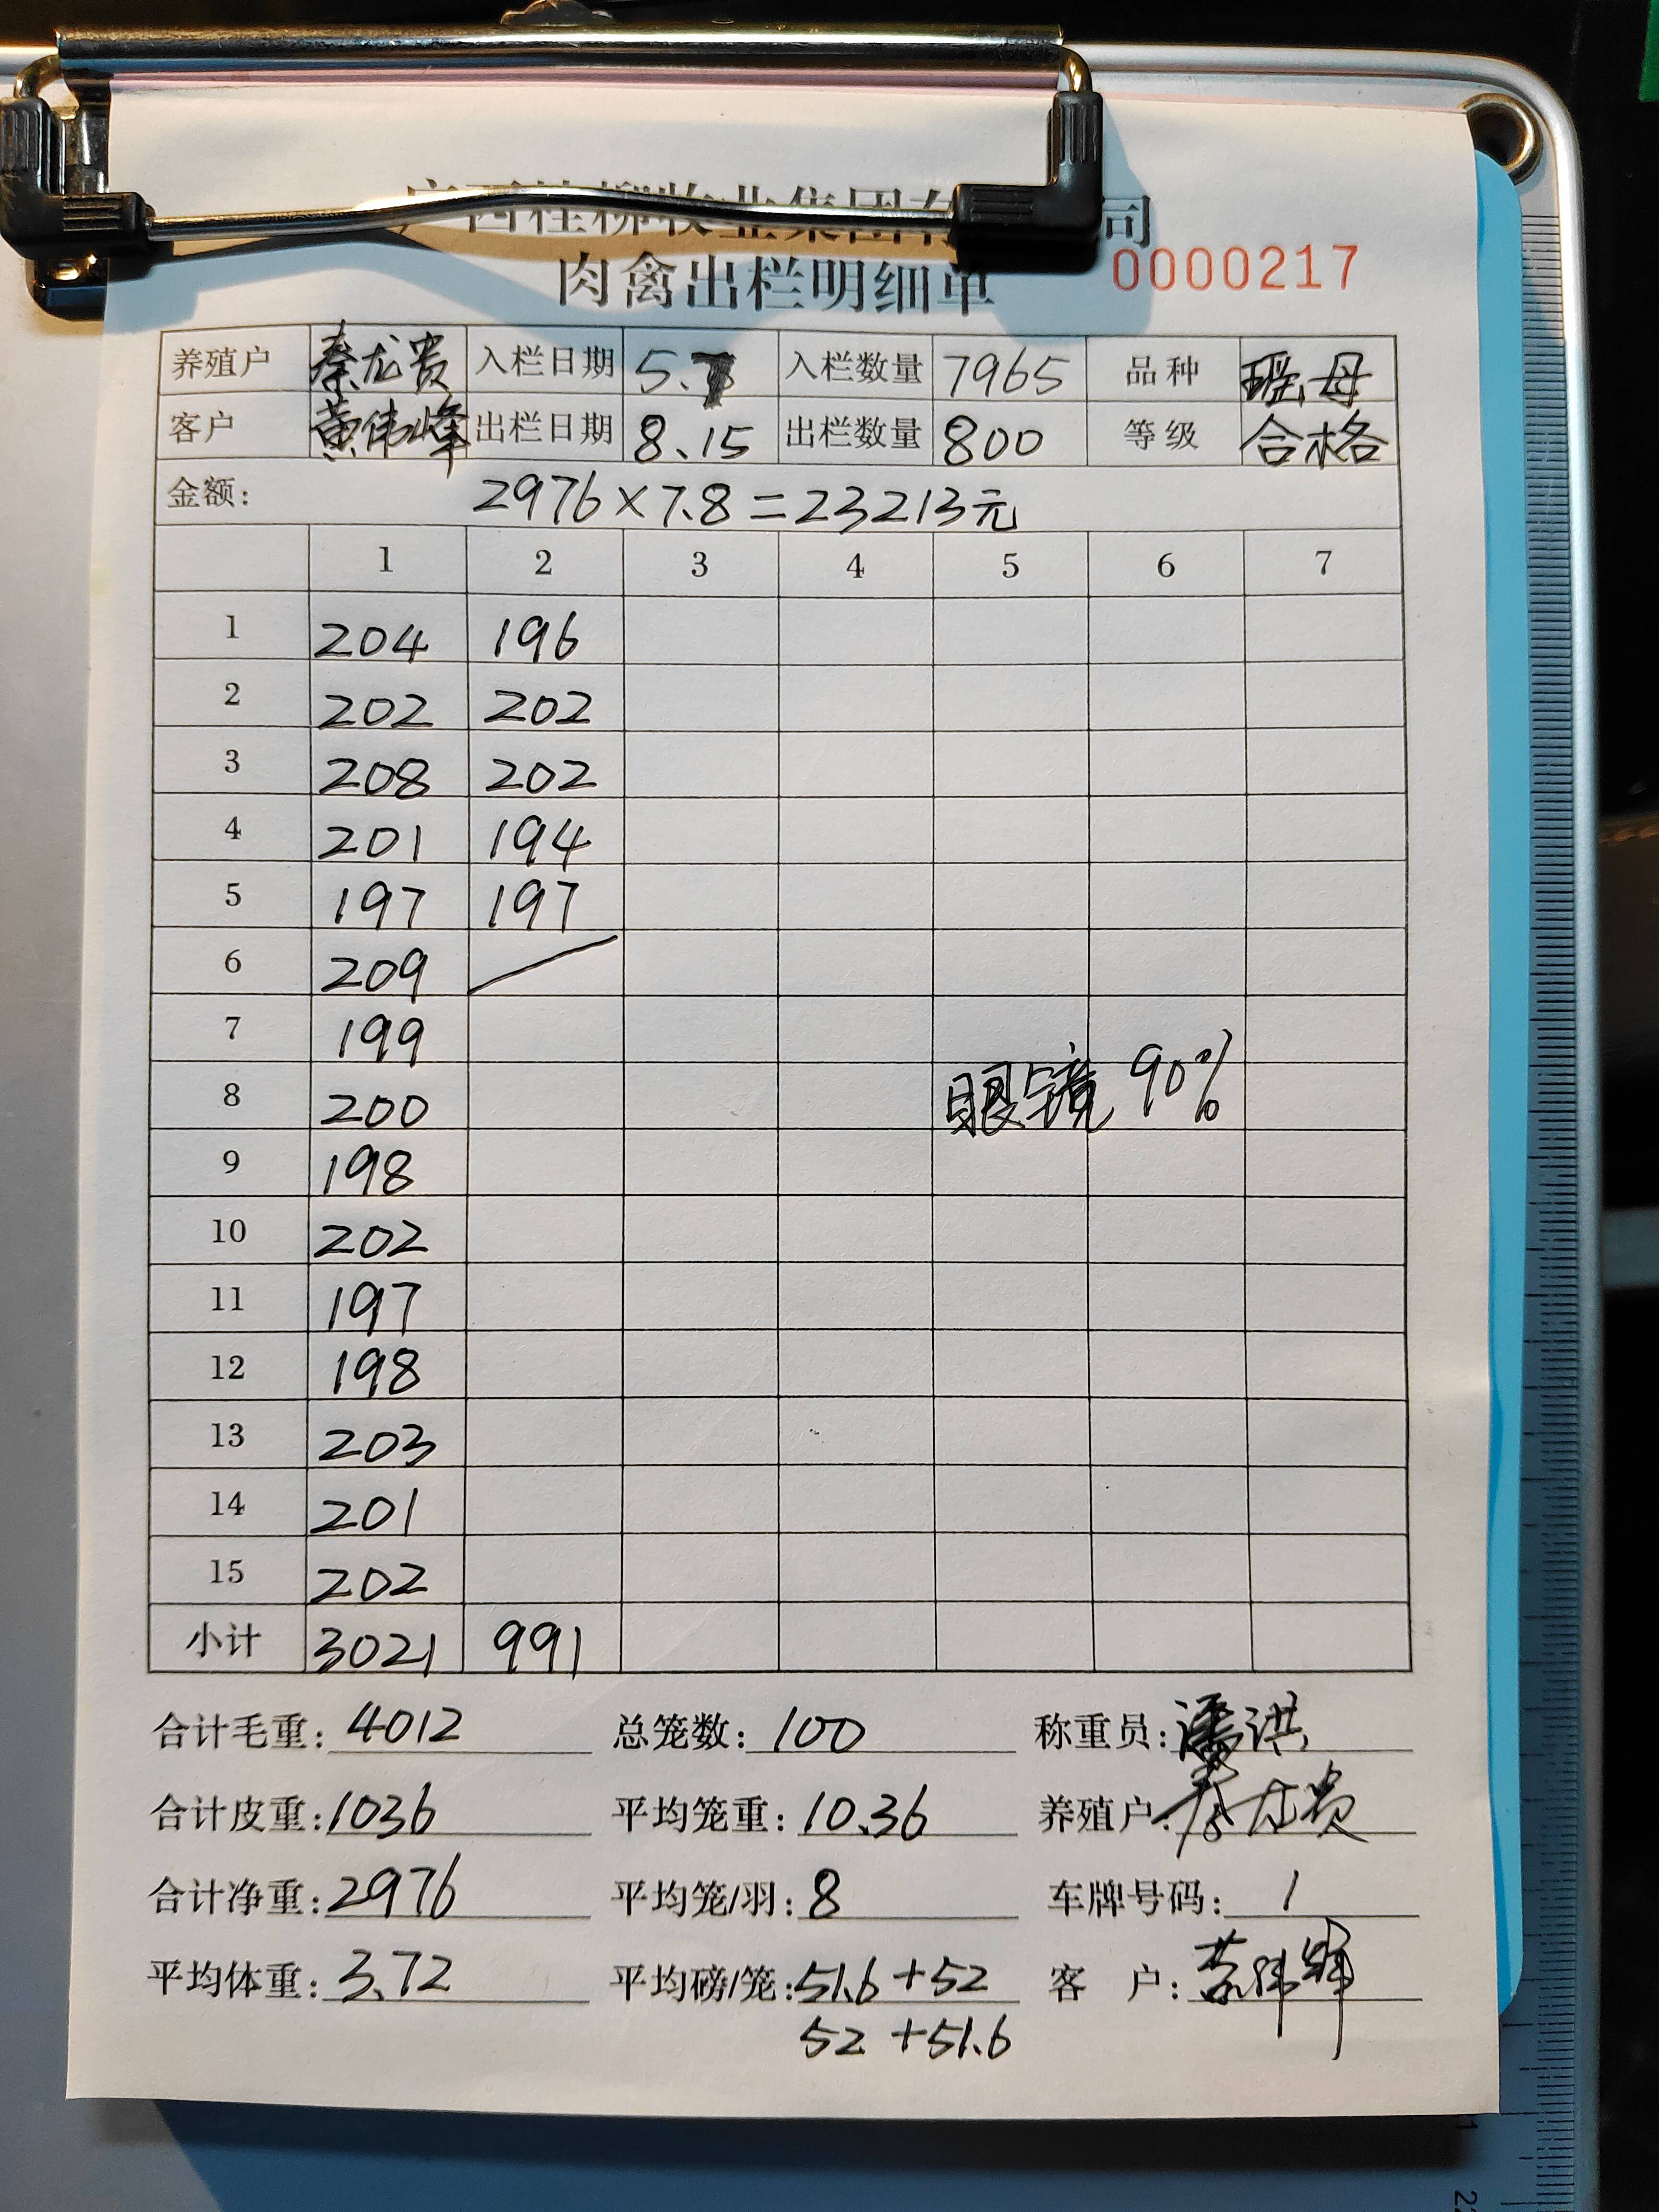 广西桂柳牧业集团有 司
肉禽出栏明细单 0000217
养殖户 秦龙贵 入栏日期 5. 入栏数量 7965 品种 母
客户 黄伟峰 出栏日期 8.15 出栏数量 800 等级 合格
金额: 2976×7.8=23213元
1 2 3 4 5 6 7
1 204 196
2 202 202
3 208 202
4 201 194
5 197 197
6 209
7 199
8 200 眼镜 90%
9 198
10 202
11 197
12 198
13 203
14 201
15 202
小计 3021 991
合计毛重: 4012 总笼数: 100 称重员: 潘洪
合计皮重: 1036 平均笼重: 10.36 养殖户: 秦龙贵
合计净重: 2976 平均笼/羽: 8 车牌号码: 1
平均体重: 3.72 平均磅/笼: 51.6+52 客 户: 黄伟峰
52+51.6